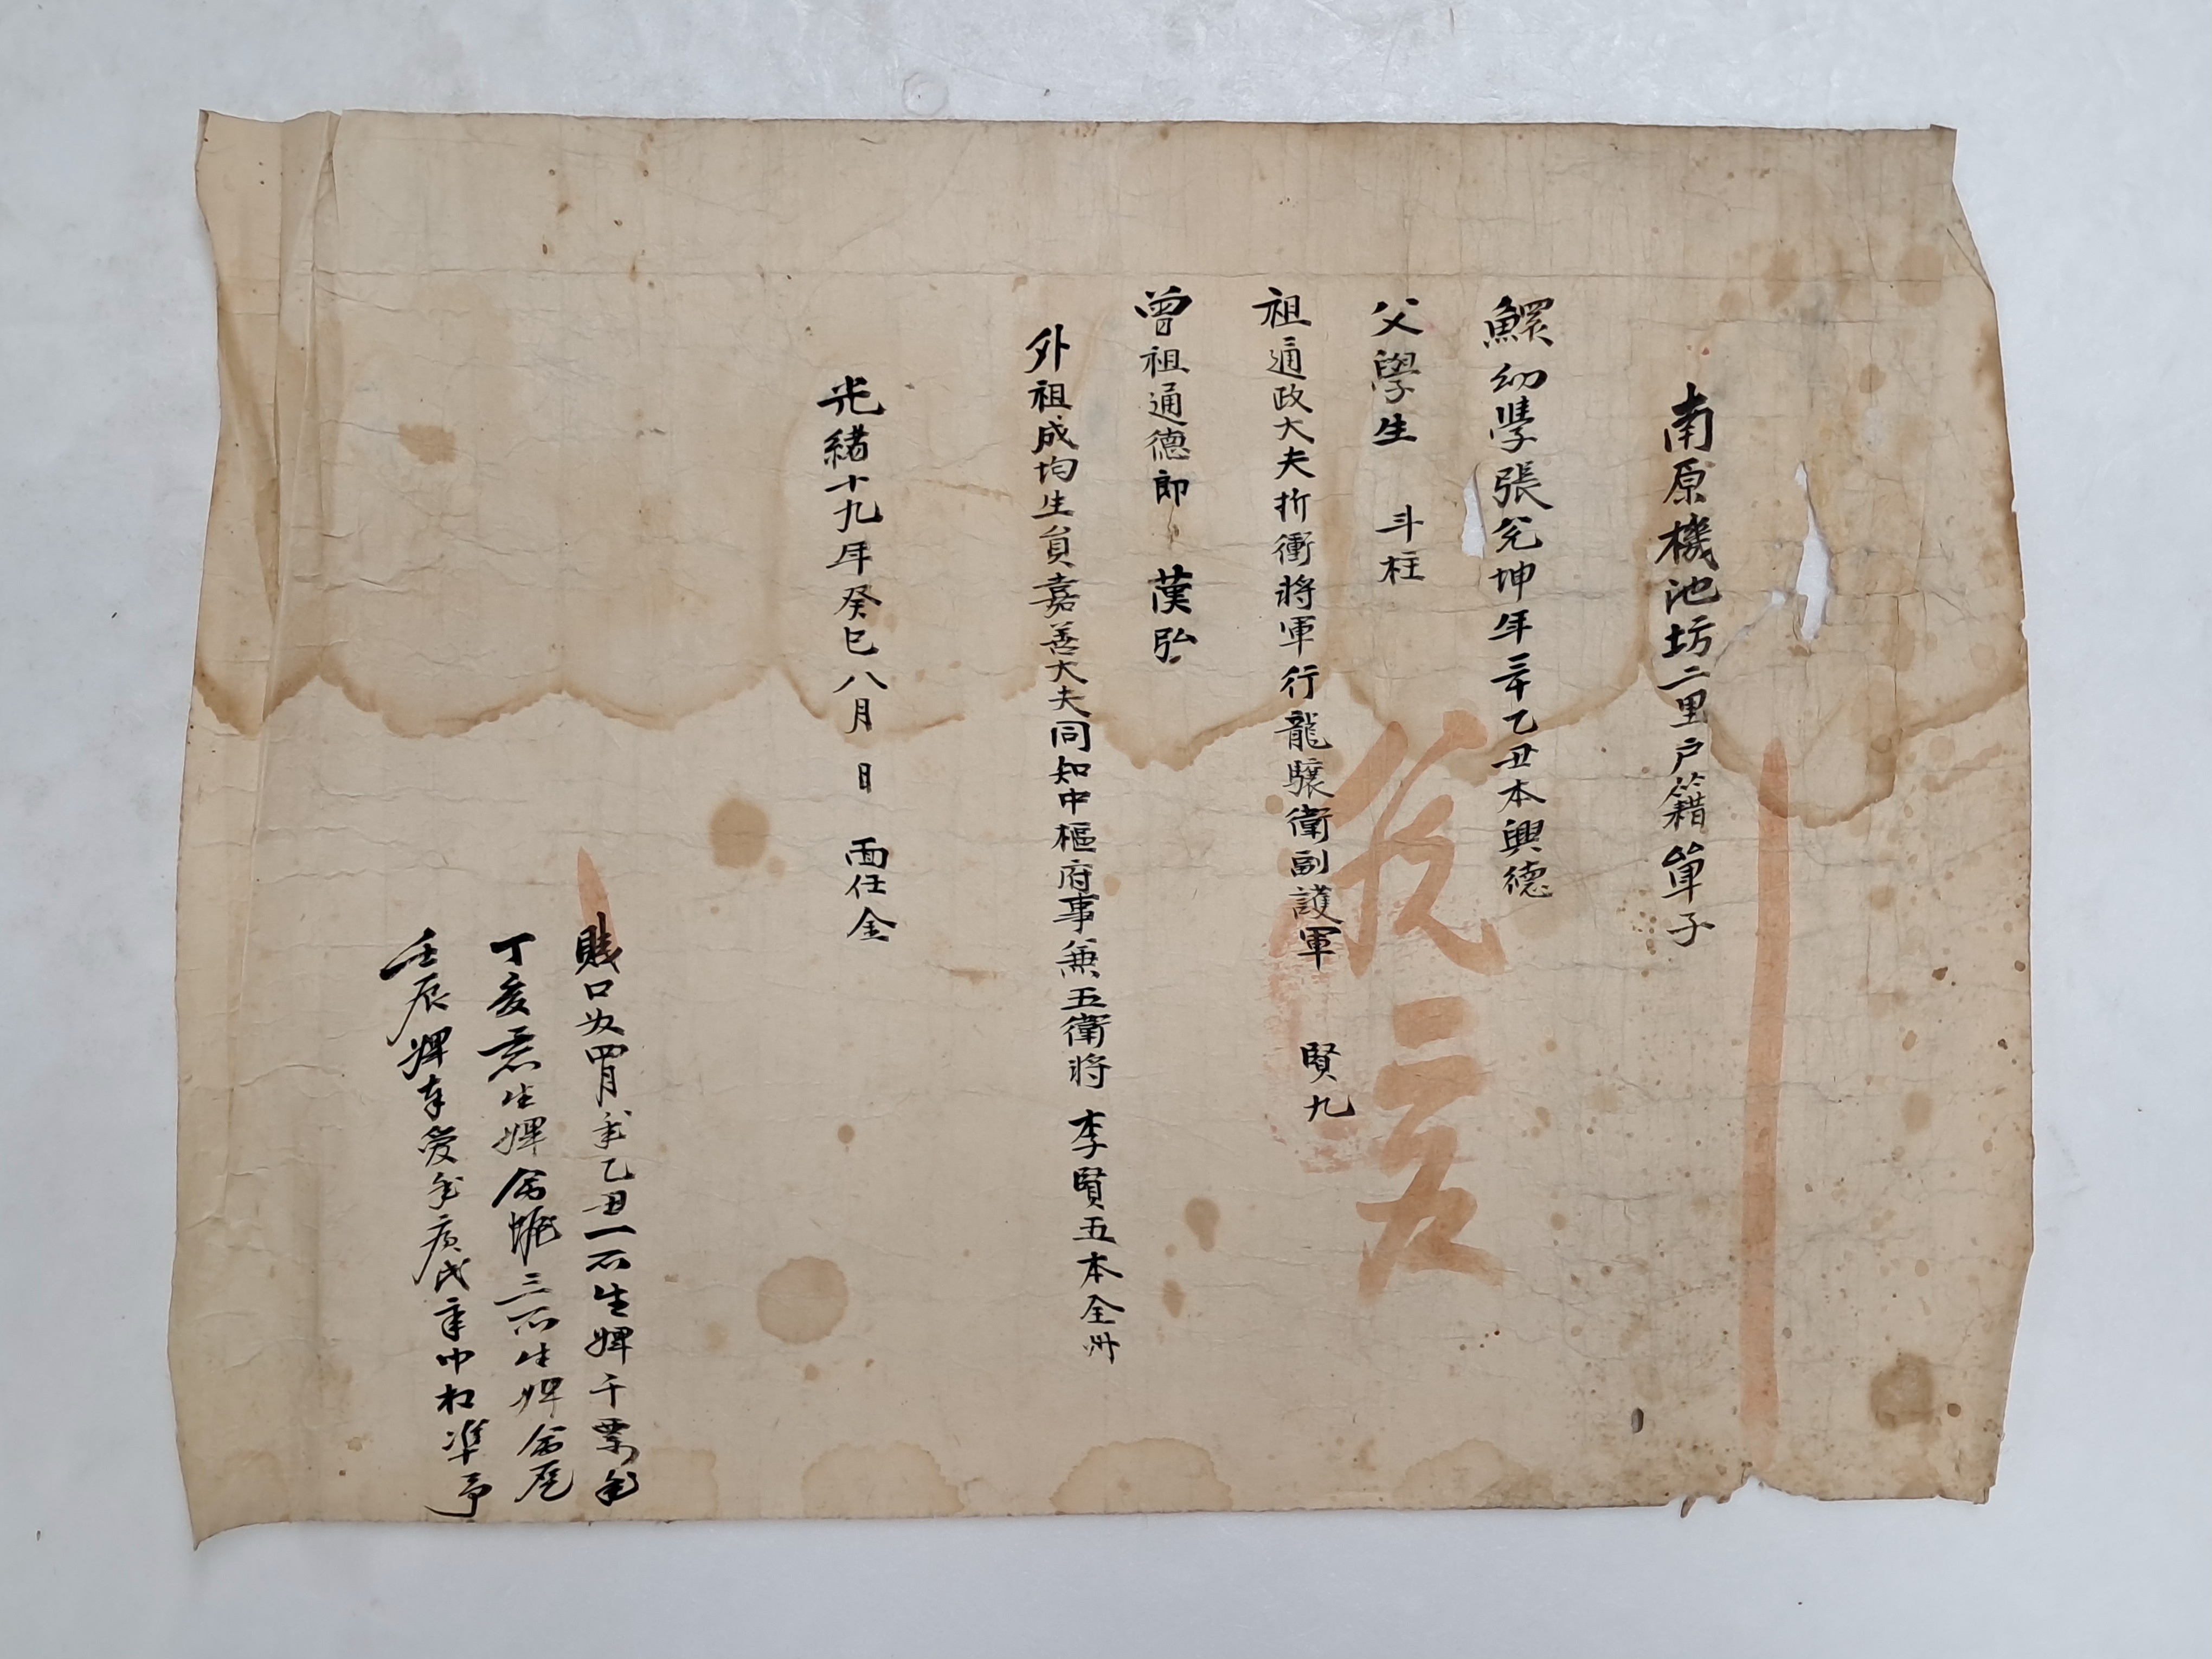 南原機池坊二里戶籍單子
鰥幼學張兌坤年三十乙丑本興德
父學生 斗柱
祖通政大夫折衝將軍行龍驤衛副護軍 賢九
曾祖通德郎 漢弘
外祖成均生員嘉善大夫同知中樞府事兼五衛將 李賢五本全州
光緖十九年癸巳八月 日 面任金
賤口奴 月 年乙丑一所生婢千 年
丁亥 生婢 三所生婢
壬辰婢 愛年 戊 印相準予